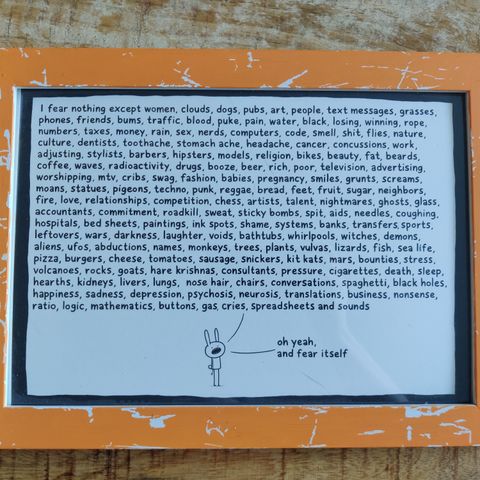 I fear nothing except women, clouds, dogs, pubs, art, people, text messages, grasses,
phones, friends, bums, traffic, blood, puke, pain, water, black, losing, winning, rope,
numbers, taxes, money, rain, sex, nerds, computers, code, smell, shit, flies, nature,
culture, dentists, toothache, stomach ache, headache, cancer, concussions, work,
adjusting, stylists, barbers, hipsters, models, religion, bikes, beauty, fat, beards,
coffee, waves, radioactivity, drugs, booze, beer, rich, poor, television, advertising,
worshipping, mtv, cribs, swag, fashion, babies, pregnancy, smiles, grunts, screams,
moans, statues, pigeons, techno, punk, reggae, bread, feet, fruit, sugar, neighbors,
fire, love, relationships, competition, chess, artists, talent, nightmares, ghosts, glass,
accountants, commitment, roadkill, sweat, sticky bombs, spit, aids, needles, coughing,
hospitals, bed sheets, paintings, ink spots, shame, systems, banks, transfers, sports,
leftovers, wars, darkness, laughter, voids, bathtubs, whirlpools, witches, demons,
aliens, ufos, abductions, names, monkeys, trees, plants, vulvas, lizards, fish, sea life,
pizza, burgers, cheese, tomatoes, sausage, snickers, kit kats, mars, bounties, stress,
volcanoes, rocks, goats, hare krishnas, consultants, pressure, cigarettes, death, sleep,
hearths, kidneys, livers, lungs, nose hair, chairs, conversations, spaghetti, black holes,
happiness, sadness, depression, psychosis, neurosis, translations, business, nonsense,
ratio, logic, mathematics, buttons, gas, cries, spreadsheets and sounds
oh yeah,
and fear itself